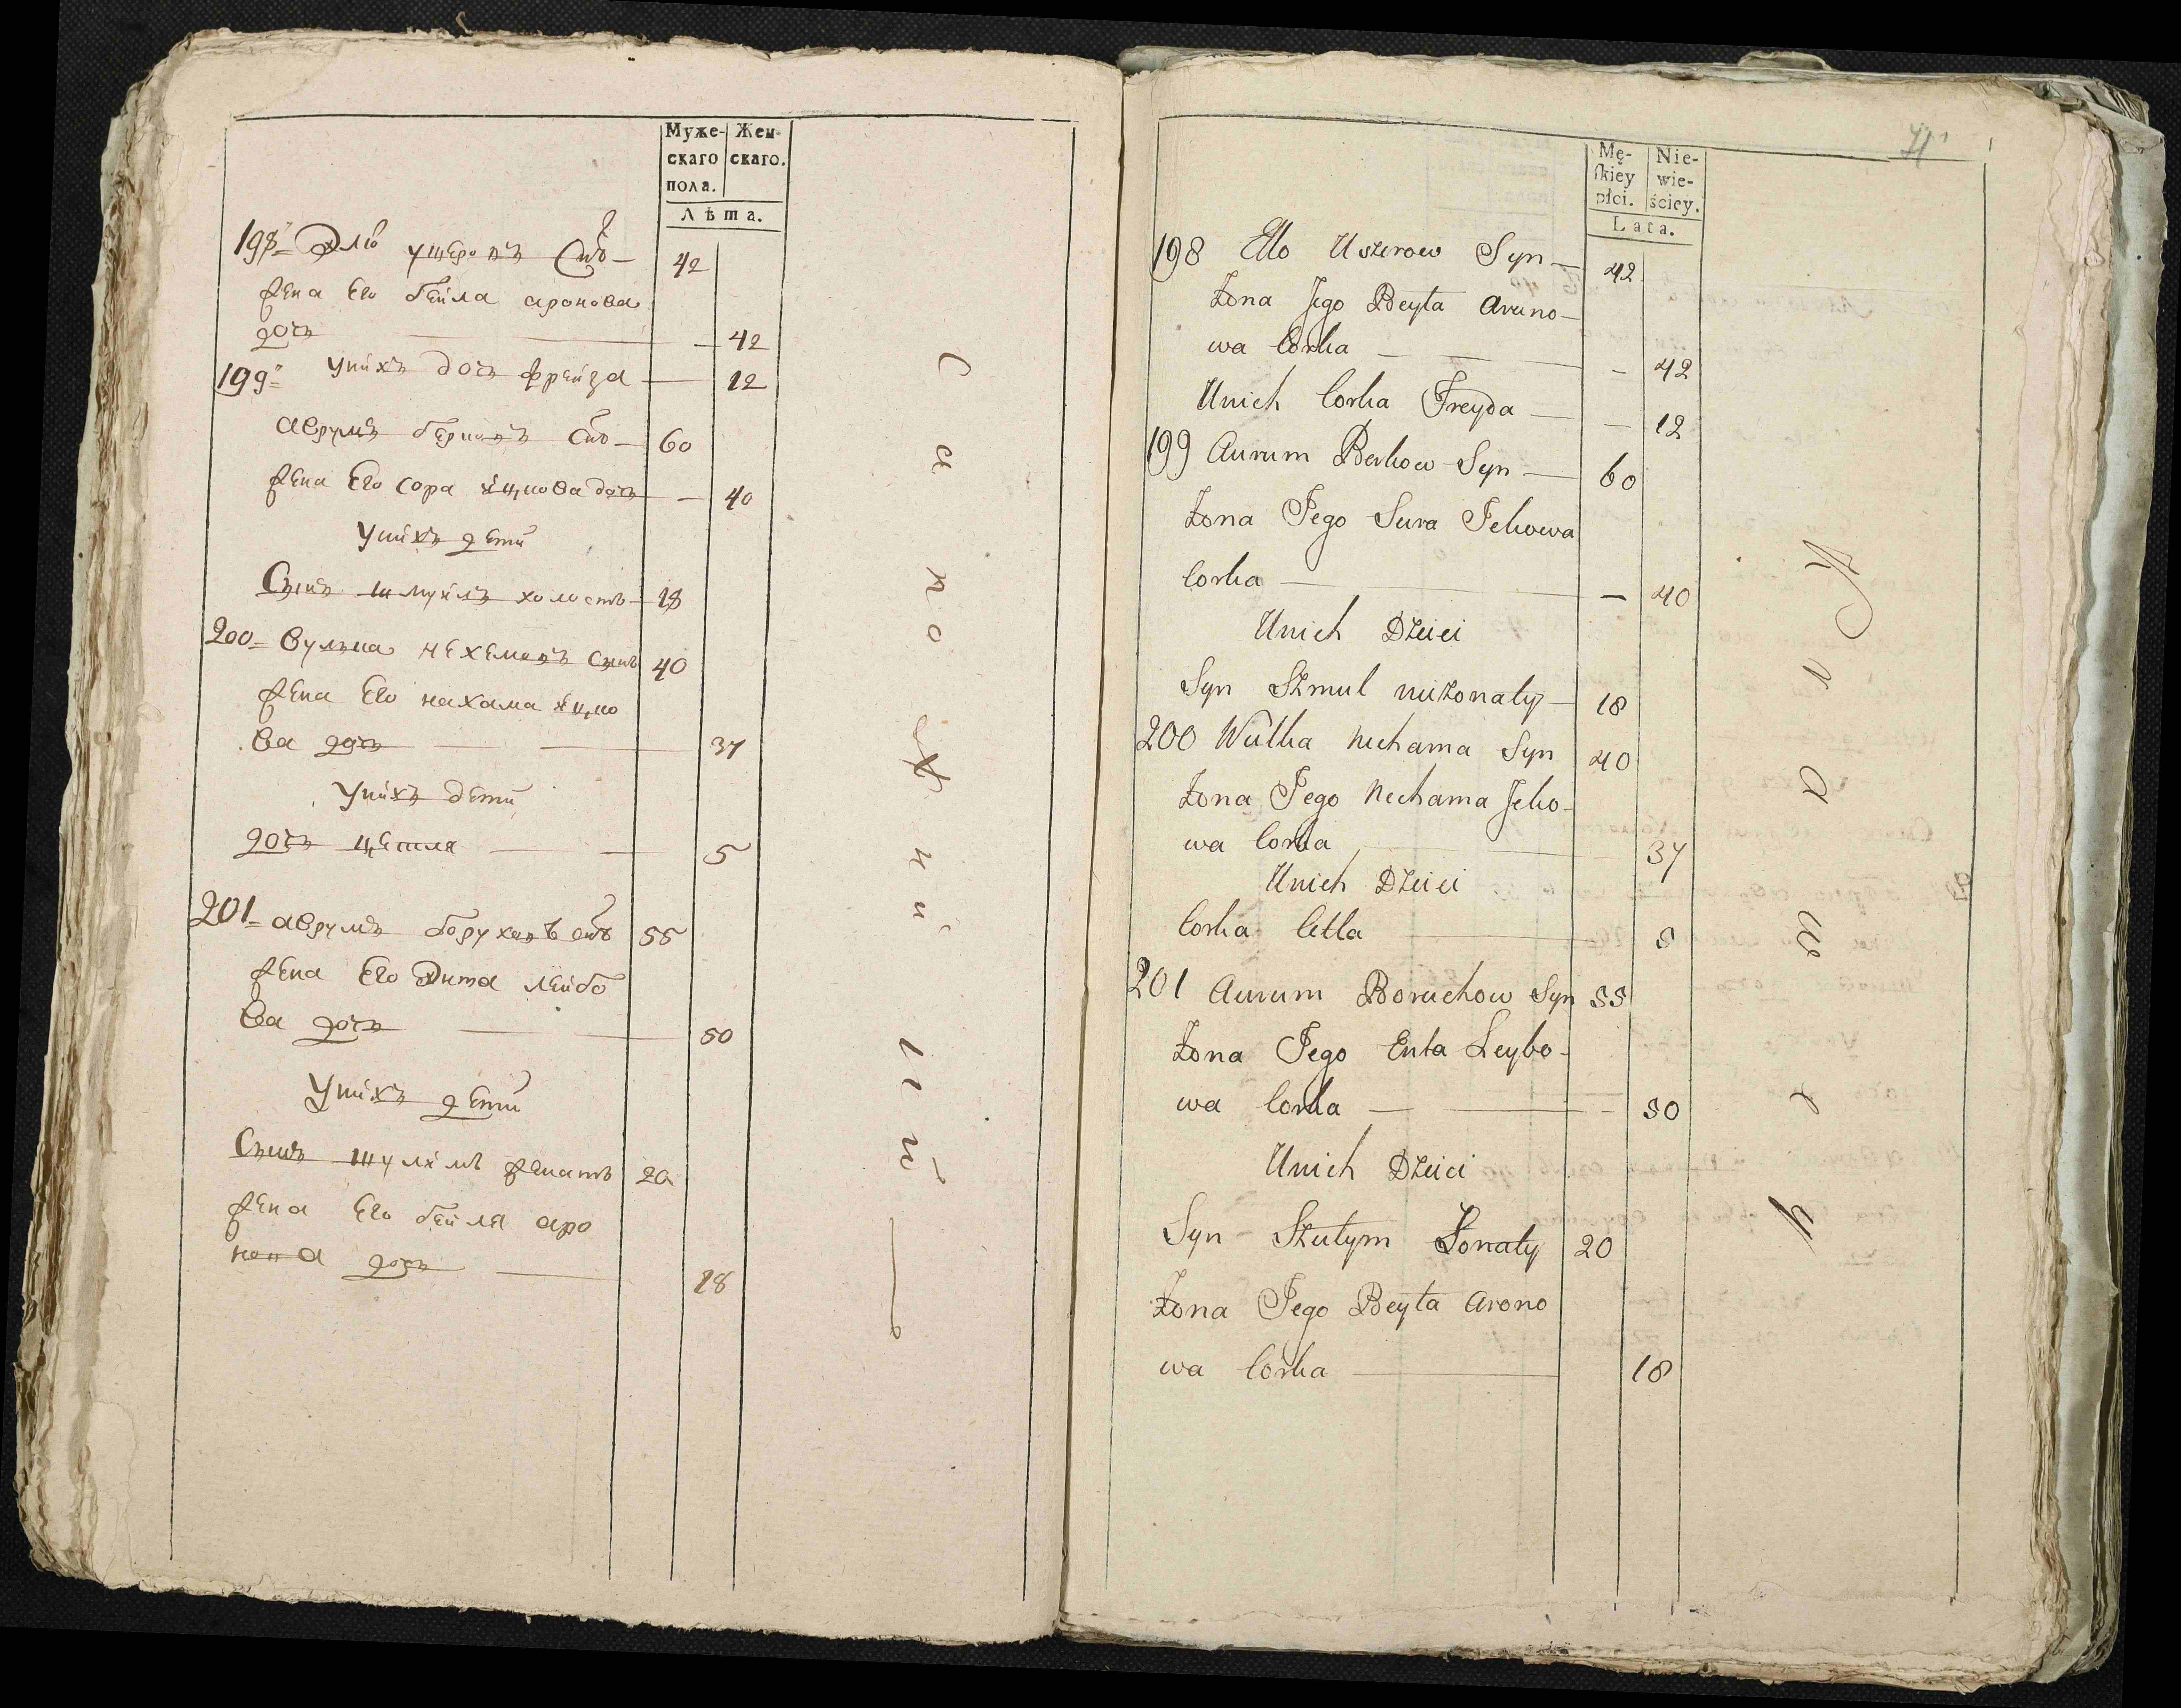 Муже- Жен-
скаго скаго.
пола.
Лѣта.
198 Элю ушеровъ Снъ — 42
жена Его бейла аронова
дочъ — 42
199 уникъ дочъ фрейда — 12
аврумъ берковъ Снъ — 60
жена Его сора ицкова дочъ — 40
унихъ дети
Сынъ шмуйлъ холостъ 18
200 вулька нехемовъ Сынъ 40
жена Его нахама ицко
ва дочъ — 37
унихъ дети
дочъ цетля — 5
201 аврумъ боруховъ снъ 55
жена Его Энта лейбо
ва дочъ — 50
Унихъ дети
Сынъ шулимъ женатъ 20
жена Его бейля аро
нова дочъ — 18
Mę- Nie-
ſkiey wie-
płci. ściey.
Lata.
198 Elo Uszerow Syn — 42
Żona Jego Beyła Aruno-
wa Corka — 42
Unich Corka Freyda — 12
199 Aurum Berkow Syn — 60
Żona Jego Sura Jckowa
Corka — 40
Unich Dzieci
Syn Szmul nieżonaty — 18
200 Wulka Nechama Syn 40
Żona Jego Nechama Jcko-
wa Corka 37
Unich Dzieci
Corka Cetla 5
201 Aurum Boruchow Syn 55
Żona Jego Enta Leybo-
wa Corka — 50
Unich Dzieci
Syn Szulym Żonaty 20
Żona Jego Beyła Arono
wa Corka 18